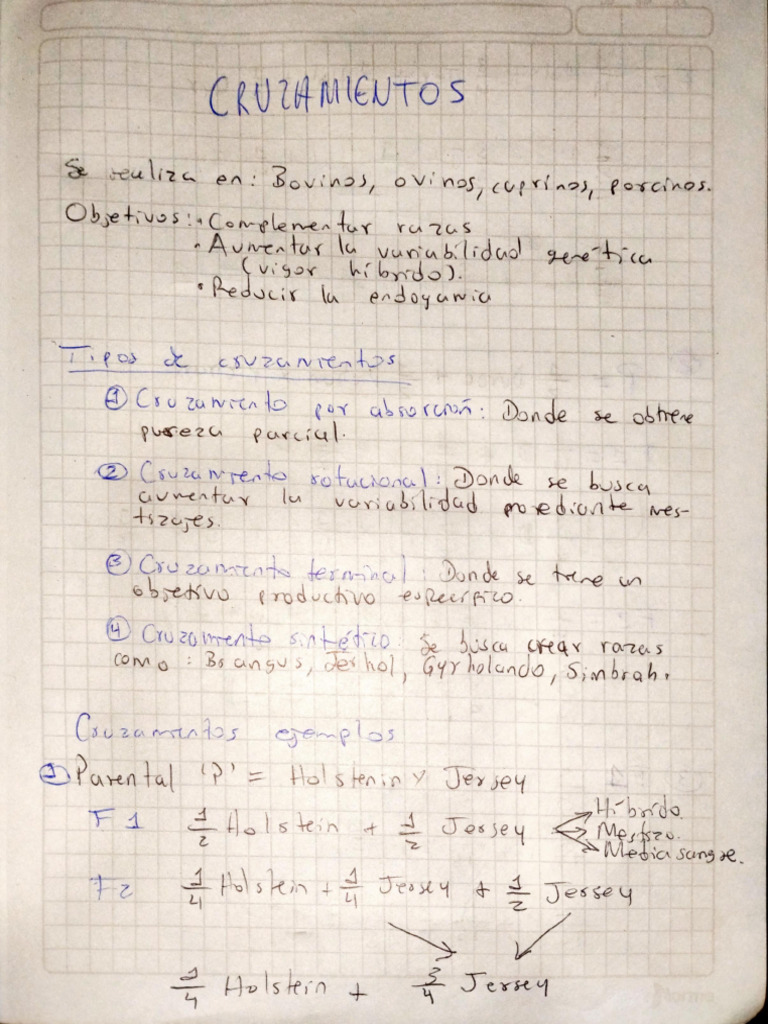 CRUZAMIENTOS
Se realiza en: Bovinos, ovinos, caprinos, porcinos.
Objetivos: • Complementar razas
• Aumentar la variabilidad genética
(vigor híbrido).
• Reducir la endogamia
Tipos de cruzamientos
① Cruzamiento por absorción: Donde se obtiene
pureza parcial.
② Cruzamiento rotacional: Donde se busca
aumentar la variabilidad mediante mes-
tizajes.
③ Cruzamiento terminal: Donde se tiene un
objetivo productivo específico.
④ Cruzamiento sintético: Se busca crear razas
como: Brangus, Jerhol, Gyrholando, Simbrah.
Cruzamientos ejemplos
① Parental 'P' = Holstenin y Jersey
F1 1/2 Holstein + 1/2 Jersey
Híbrido.
Mestizo.
Media sangre.
F2 1/4 Holstein + 1/4 Jersey + 1/2 Jersey
1/4 Holstein + 3/4 Jersey